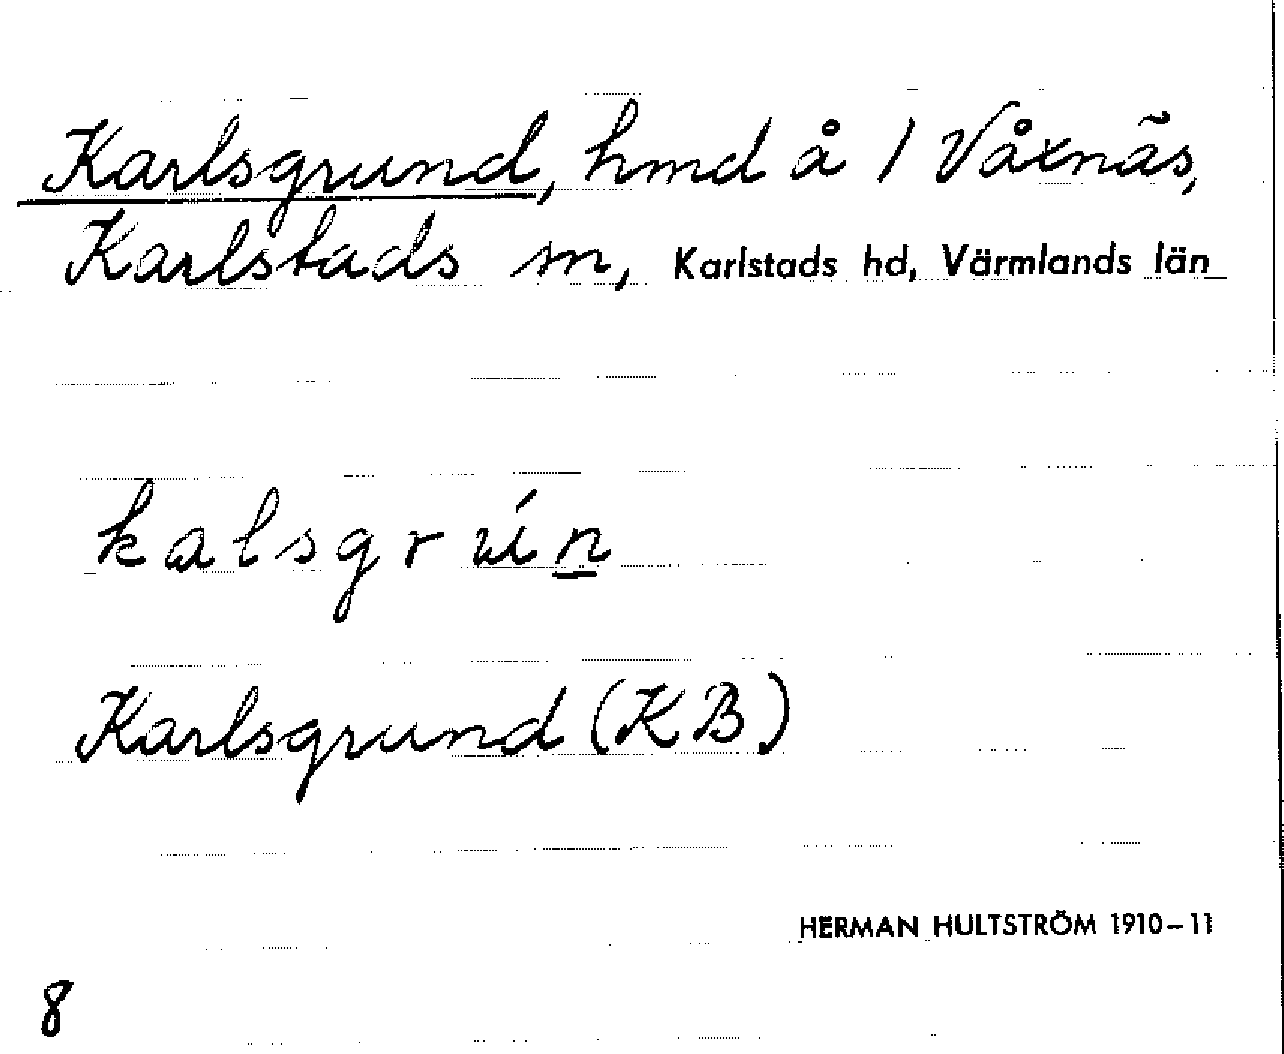 Karlsgrund, hmd å 1 Våxnäs,
Karlstads sn, Karlstads hd, Värmlands län
kalsgrún
Karlsgrund (KB)
HERMAN HULTSTRÖM 1910-11
8